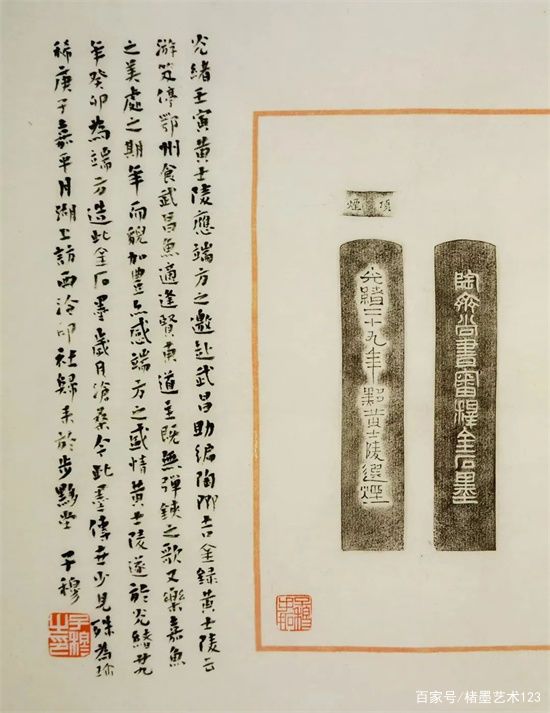 陶齋尚書審釋金石墨
頂煙
光緒二十九年黟黃士陵選煙
光緒壬寅黃士陵應端方之邀赴武昌助編陶齋吉金錄黃士陵云
游笈停鄂州食武昌魚適逢賢東道主既無彈鋏之歌又樂嘉魚
之美處之期年而貌加豐焉感端方之盛情黃士陵遂於光緒廿九
年癸卯為端方造此金石墨歲月滄桑今此墨傳世少見殊為珍
稀庚子嘉平月湖上訪西泠印社歸來於步黟堂 子穆
子穆之印
百家号/楮墨艺术123